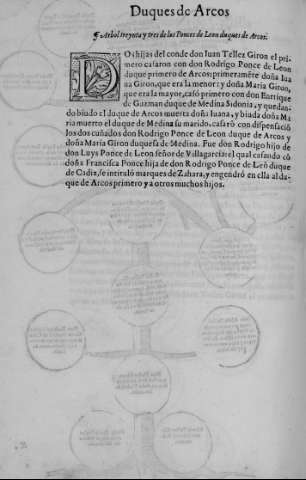 Duques de Arcos
¶ Arbol treynta y tres de los Ponces de Leon duques de Arcos.
DOs hijas del conde don Iuan Tellez Giron el pri
mero casaron con don Rodrigo Ponce de Leon
duque primero de Arcos: primeramẽte doña Iua
na Giron, que era la menor: y doña Maria Giron,
que era la mayor, casó primero con don Enrrique
de Guzman duque de Medina Sidonia, y quedan-
do biudo el duque de Arcos muerta doña Iuana, y biuda doña Ma
ria muerto el duque de Medina su marido, casarõ con dispensació
los dos cuñados don Rodrigo Ponce de Leon duque de Arcos y
doña Maria Giron duquesa de Medina. Fue don Rodrigo hijo de
don Luys Ponce de Leon señor de Villagarcia: el qual casando cõ
doña Francisca Ponce hija de don Rodrigo Ponce de Leõ duque
de Cadiz, se intituló marques de Zahara, y engendró en ella al du-
que de Arcos primero y a otros muchos hijos.